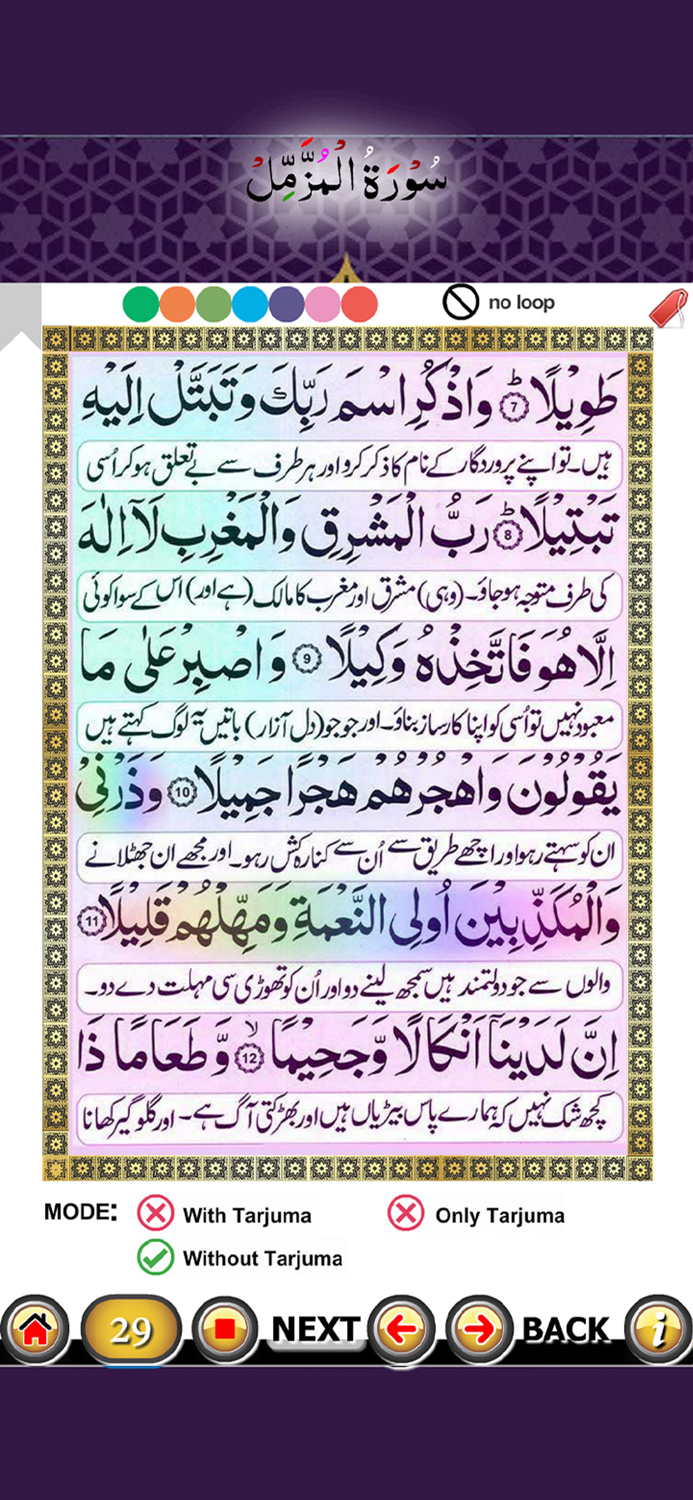 سُوْرَةُ الْمُزَّمِّلْ
no loop
طَوِيْلًا ؕ۷ وَاذْكُرِ اسْمَ رَبِّكَ وَتَبَتَّلْ اِلَيْهِ
ہیں۔ تو اپنے پروردگار کے نام کا ذکر کرو اور ہر طرف سے بے تعلق ہو کر اُسی
تَبْتِيْلًا ؕ۸ رَبُّ الْمَشْرِقِ وَالْمَغْرِبِ لَآ اِلٰهَ
کی طرف متوجہ ہو جاؤ۔ (وہی) مشرق اور مغرب کا مالک (ہے اور) اس کے سوا کوئی
اِلَّا هُوَ فَاتَّخِذْهُ وَكِيْلًا ۹ وَاصْبِرْ عَلٰى مَا
معبود نہیں تو اُسی کو اپنا کارساز بناؤ۔ اور جو جو (دل آزار) باتیں یہ لوگ کہتے ہیں
يَقُوْلُوْنَ وَاهْجُرْهُمْ هَجْرًا جَمِيْلًا ۱۰ وَذَرْنِيْ
ان کو سہتے رہو اور اچھے طریق سے اُن سے کنارہ کش رہو۔ اور مجھے ان جھٹلانے
وَالْمُكَذِّبِيْنَ اُولِى النَّعْمَةِ وَمَهِّلْهُمْ قَلِيْلًا ۱۱
والوں سے جو دولتمند ہیں سمجھ لینے دو اور اُن کو تھوڑی سی مہلت دے دو۔
اِنَّ لَدَيْنَآ اَنْكَالًا وَّجَحِيْمًا ۙ۱۲ وَّطَعَامًا ذَا
کچھ شک نہیں کہ ہمارے پاس بیڑیاں ہیں اور بھڑکتی آگ ہے۔ اور گلوگیر کھانا
MODE: With Tarjuma Only Tarjuma
Without Tarjuma
29 NEXT BACK i